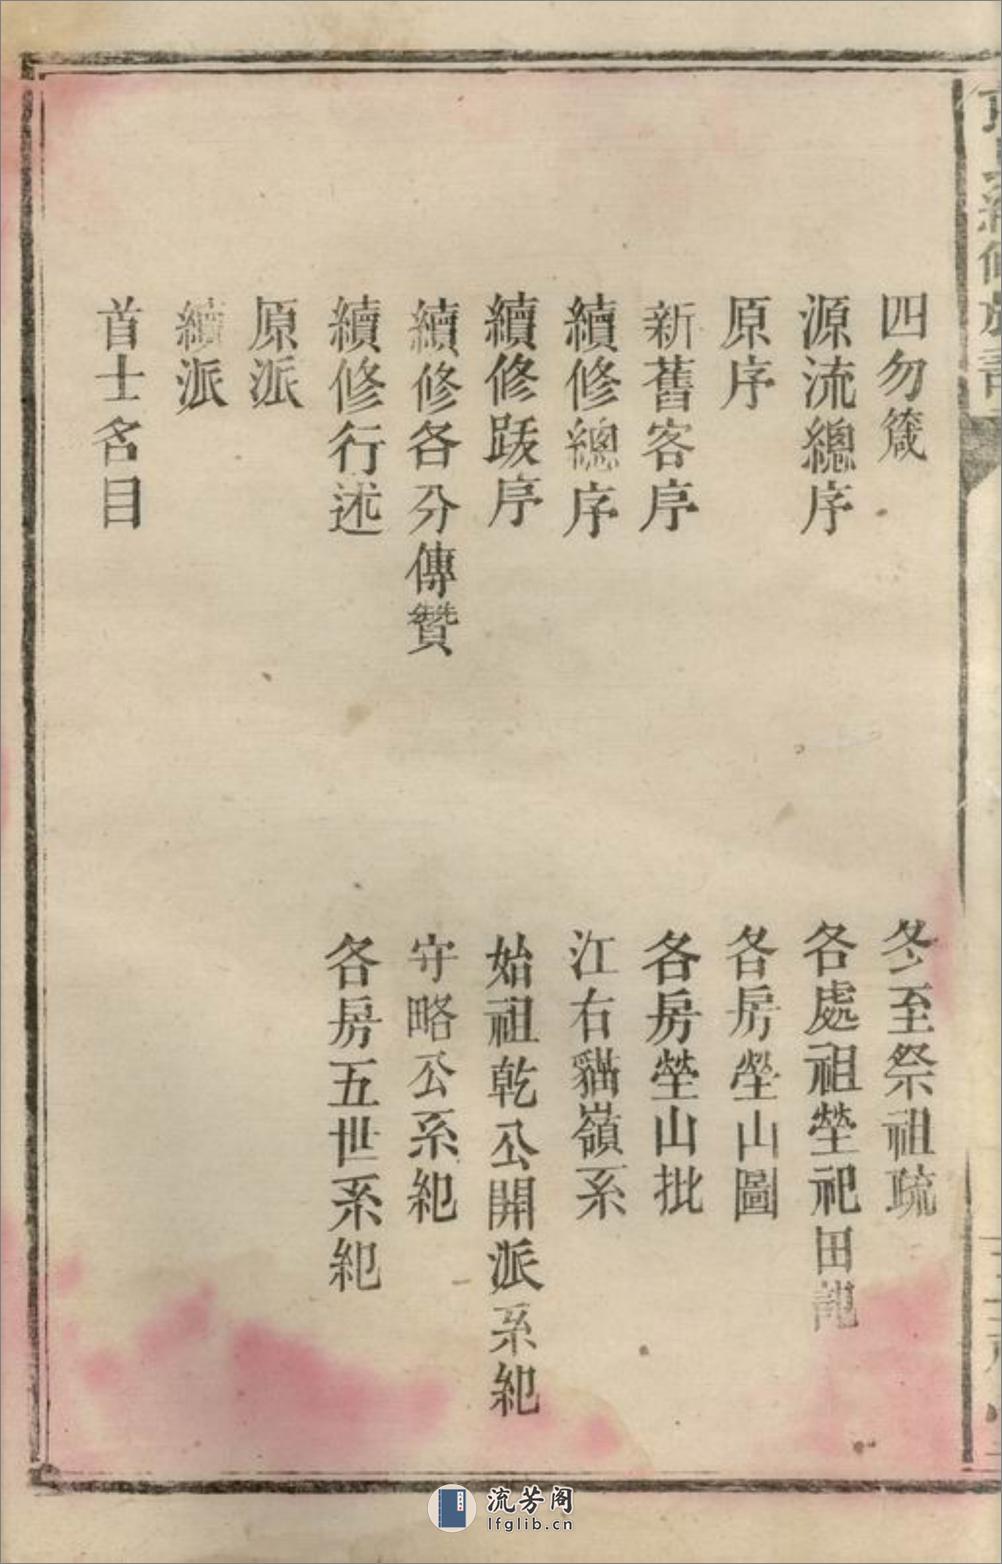 四勿箴
源流總序
原序
新舊客序
續修總序
續修跋序
續修各分傳贊
續修行述
原派
續派
首士名目
冬至祭祖疏
各處祖塋祀田記
各房塋山圖
各房塋山批
江右貓嶺系
始祖乾公開派系紀
守略公系紀
各房五世系紀
流芳阁
lfglib.cn